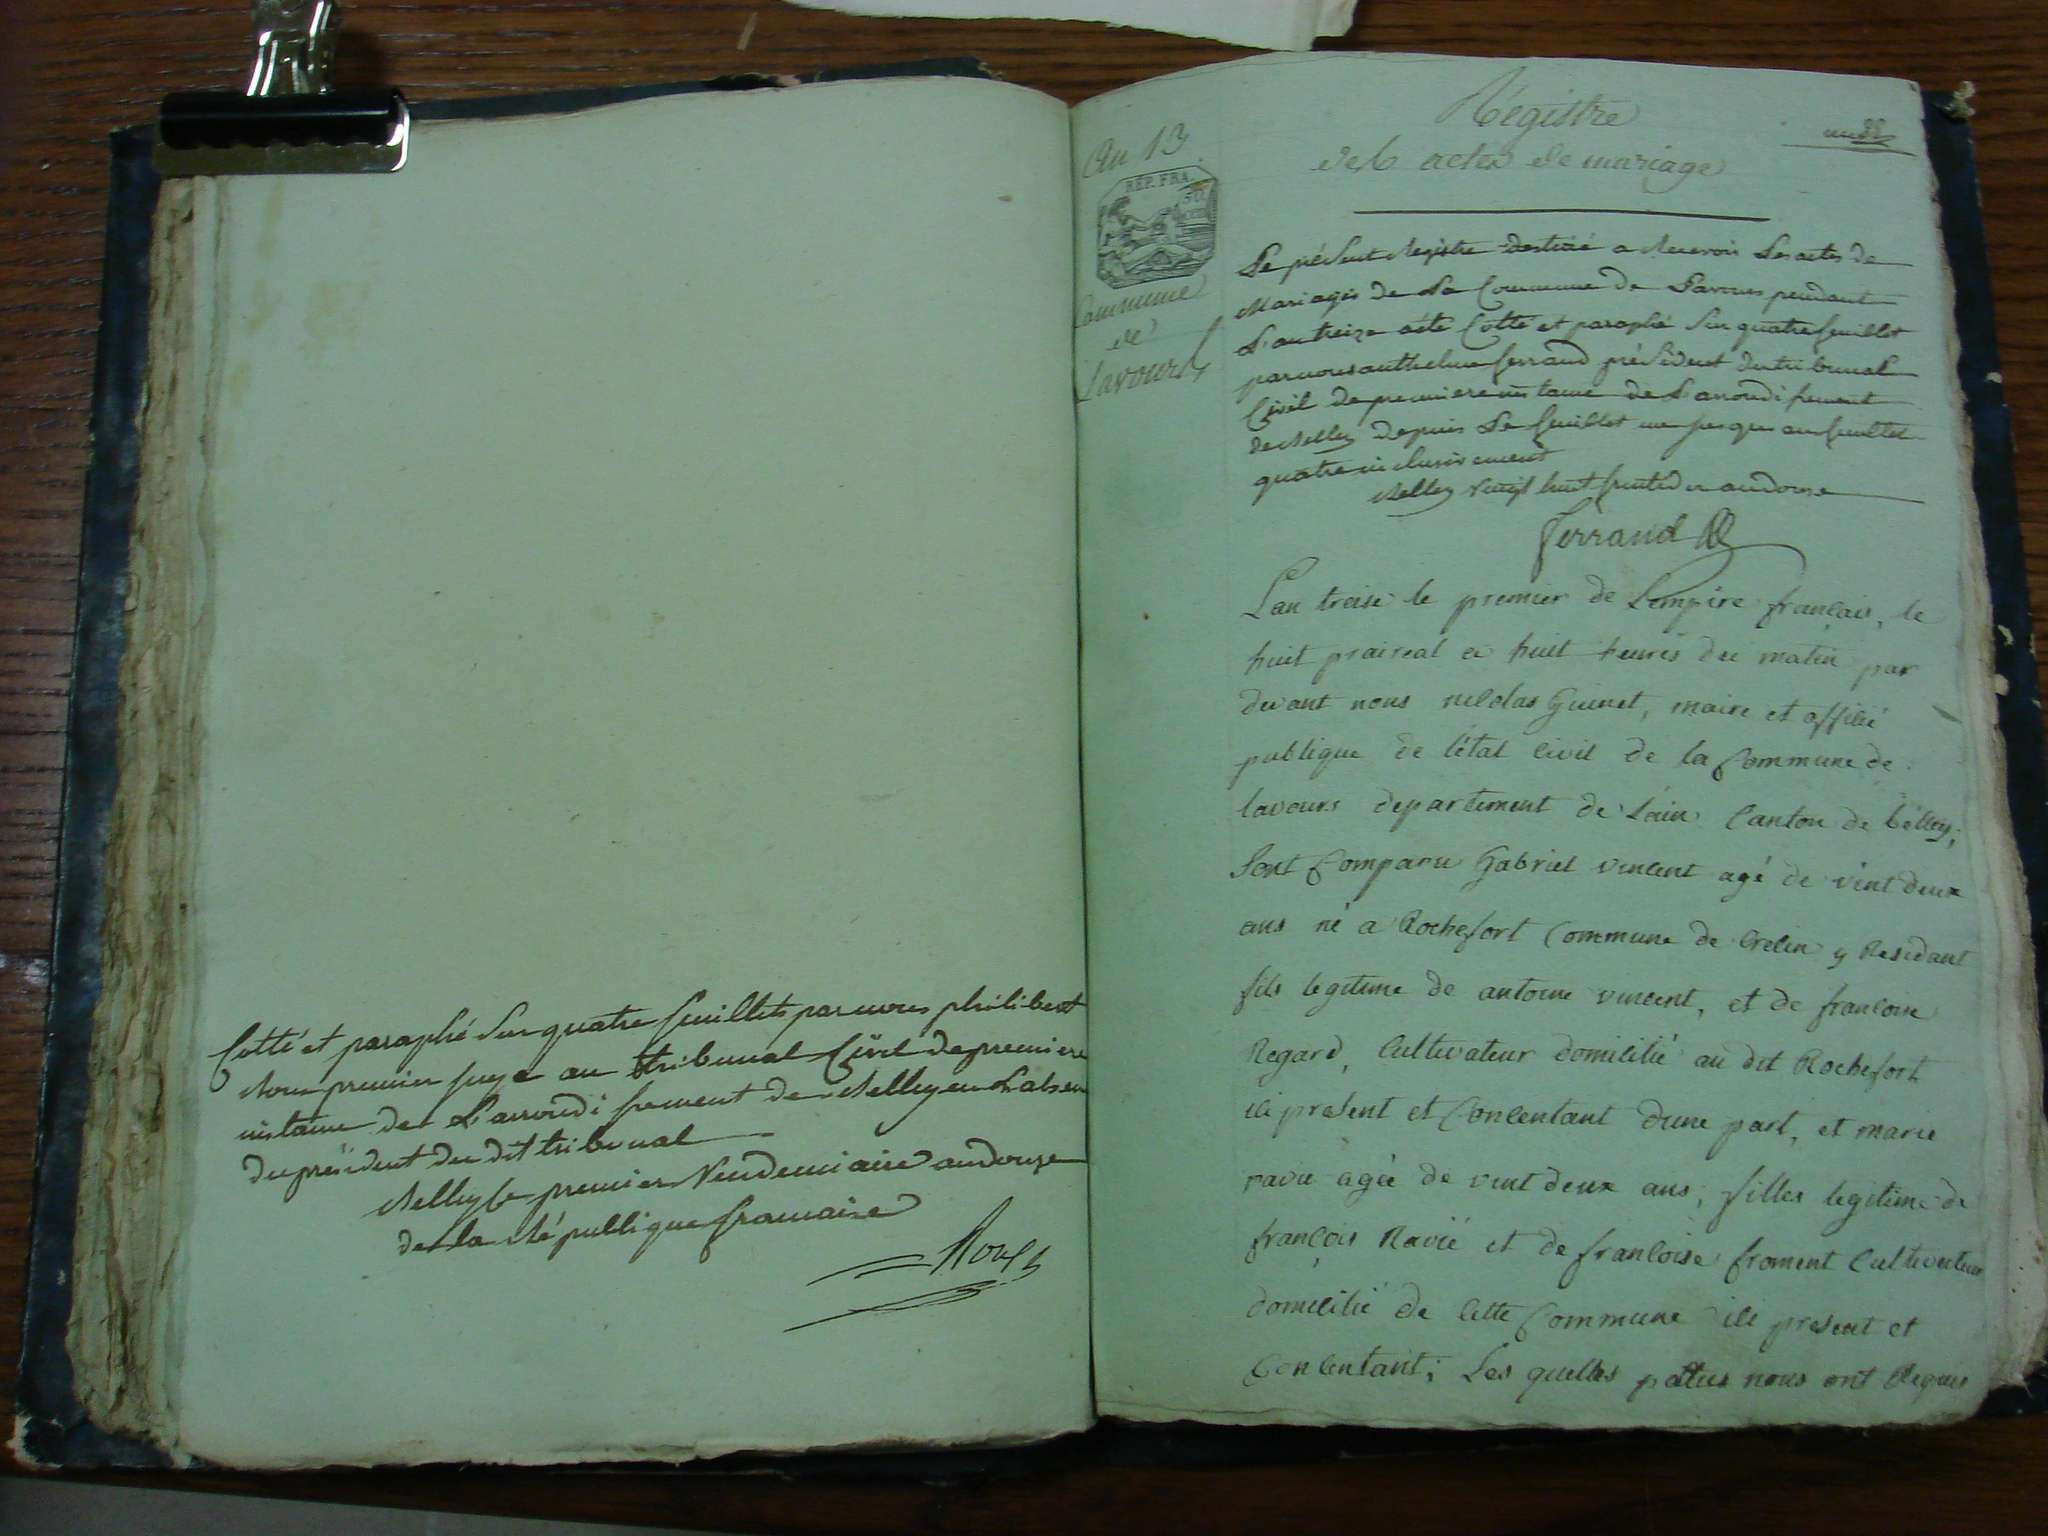 Cotté et paraphé Sur quatre feuillets par nous philibert
premier juge au tribunal Civil de premiere
instance de L'arrondissement de Belley en L'absen
du président du dit tribunal
Belley le premier Vendemiaire an douze
de la République francaise
An 13
RÉP. FRA.
Commune
de
Lavours
un
Régistre
des actes de mariage
Le présent Registre destiné a Recevoir Les actes de
Mariages de La Commune de Lavours pendant
L'an treize a été Cotté et paraphé Sur quatre feuillet
par nous anthelme ferrand président du tribunal
Civil de premiere instance de L'arrondissement
de Belley depuis Le feuillet un jusques au feuillet
quatre inclusivement
Belley vingt huit fructidor an douze
ferrand
L'an treise le premier de L'empire français, le
huit praireal a huit heures du matin par
devant nous nicolas Guinet, maire et officié
publique de l'état civil de la Commune de
lavours departement de Lain Canton de bélley,
Sont Comparu Gabriel vincent agé de vint deux
ans né a Rochefort Commune de Crelin y Residant
fils legitime de antoine vincent, et de francoise
Regard, Cultivateur domicilié au dit Rochefort
ici present et Concentant dune part, et marie
ravié agée de vint deux ans, filles legitime de
françois Ravié et de francoise froment Cultivateur
domicilié de cette Commune ici present et
Concentant; Les quelles parties nous ont Requis